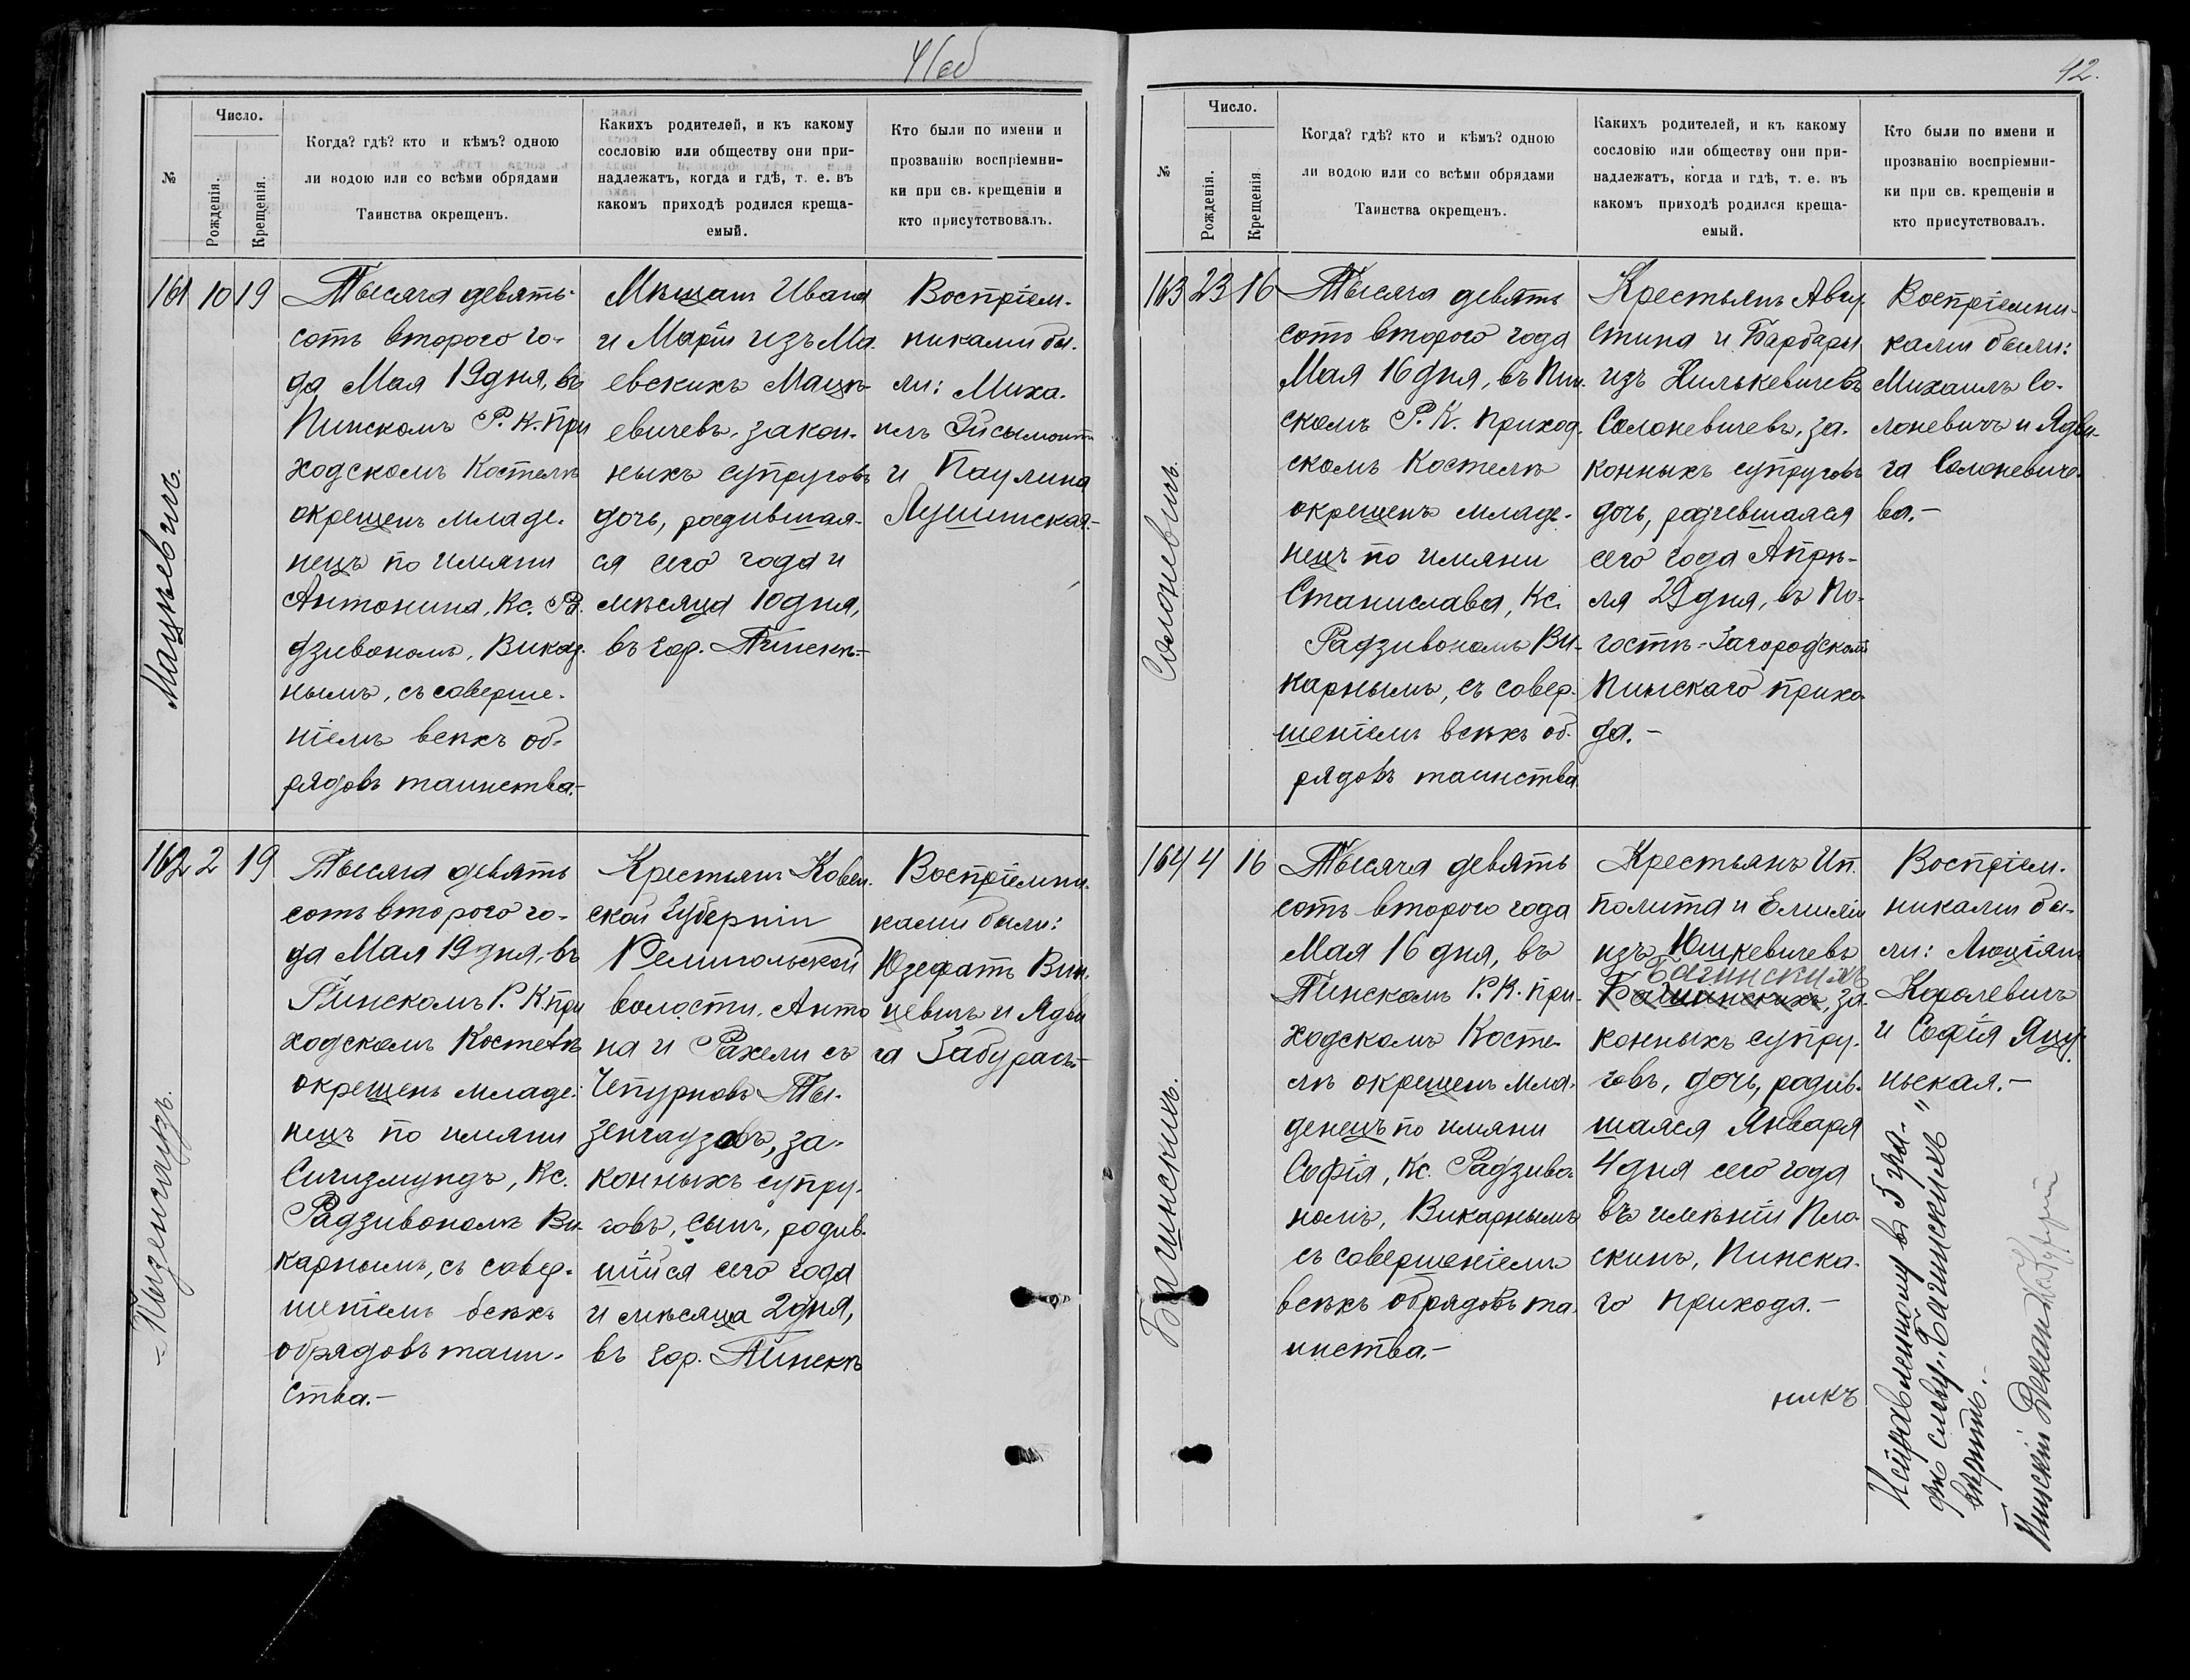 41об
№
Число.
Рожденія.
Крещенія.
Когда? гдѣ? кто и кѣмъ? одною
ли водою или со всѣми обрядами
Таинства окрещенъ.
Какихъ родителей, и къ какому
сословію или обществу они при-
надлежатъ, когда и гдѣ, т. е. въ
какомъ приходѣ родился креща-
емый.
Кто были по имени и
прозванію воспріемни-
ки при св. крещеніи и
кто присутствовалъ.
161 10 19
Мацкѣевичъ.
Тысяча девять-
сотъ второго го-
да Мая 19 дня, въ
Пинскомъ Р. К. При
ходскомъ Костелѣ
окрещенъ младе-
нецъ по имяни
Антонина, Кс. Ра
дзивономъ, Викар.
нымъ, съ соверше-
ніемъ всѣхъ об-
рядовъ таинства.-
Мѣщанъ Ивана
и Маріи изъ Ма-
евскихъ Мацкѣ-
евичевъ, закон-
ныхъ супруговъ
дочь, родившая-
ся сего года и
мѣсяца 10 дня,
въ гор. Пинскѣ.-
Воспріем-
никами бы-
ли: Миха-
илъ Эйсымонтъ
и Паулина
162 2 19
Тызенгаузъ.
Тысяча девять
сотъ второго го-
да Мая 19 дня, въ
Пинскомъ Р. К. при
ходскомъ Костелѣ
окрещенъ младе-
нецъ по имяни
Сигизмундъ, Кс.
Радзивономъ Ви-
карнымъ, съ совер-
шеніемъ всѣхъ
обрядовъ таин-
ства.-
Крестьянъ Ковен-
ской Губерніи
волости, Анто
на и Рахели съ
Чепурновъ Ты-
зенгаузовъ, за-
конныхъ супру-
говъ, сынъ, родив-
шійся сего года
и мѣсяца 2 дня,
въ гор. Пинскѣ
Воспріемни-
ками были:
Юзефатъ Вин-
цевичъ и Ядви
га
42.
№
Число.
Рожденія.
Крещенія.
Когда? гдѣ? кто и кѣмъ? одною
ли водою или со всѣми обрядами
Таинства окрещенъ.
Какихъ родителей, и къ какому
сословію или обществу они при-
надлежатъ, когда и гдѣ, т. е. въ
какомъ приходѣ родился креща-
емый.
Кто были по имени и
прозванію воспріемни-
ки при св. крещеніи и
кто присутствовалъ.
163 23 16
Солоневичъ.
Тысяча девять
сотъ второго года
Мая 16 дня, въ Пин-
скомъ Р. К. Приход-
скомъ Костелѣ
окрещенъ младе-
нецъ по имяни
Станислава, Кс.
Радзивономъ Ви-
карнымъ, съ совер-
шеніемъ всѣхъ об-
рядовъ таинства.
Крестьянъ Авгу-
стина и Барбары
изъ Хилькевичевъ
Солоневичевъ, за-
конныхъ супруговъ
дочь, родившаяся
сего года Апрѣ-
ля 29 дня, въ По-
гостѣ-Загородскомъ
Пинскаго прихо-
да.-
Воспріемни-
ками были:
Михаилъ Со-
лоневичъ и Ядви-
га Солоневиче-
ва.-
164 4 16
Багинскихъ.
Тысяча девять
сотъ второго года
Мая 16 дня, въ
Пинскомъ Р. К. при-
ходскомъ Косте-
лѣ окрещенъ мла-
денецъ по имяни
Софія, Кс. Радзиво-
номъ, Викарнымъ
съ совершеніемъ
всѣхъ обрядовъ та-
инства.-
Крестьянъ Ип-
полита и Емиліи
изъ Юшкевичевъ
Багинскихъ
Багинскихъ, за-
конныхъ супру-
говъ, дочь, родив-
шаяся Января
4 дня сего года
въ имѣніи Пло-
скинь, Пинска-
го прихода.-
никъ
Воспріем-
никами бы-
ли: Люціянъ
Королевичъ
и Софія Яцу-
нская.-
Исправленному въ 5 гра-
фѣ слову „Багинскихъ"
вѣрить.-
Пинскій Деканъ